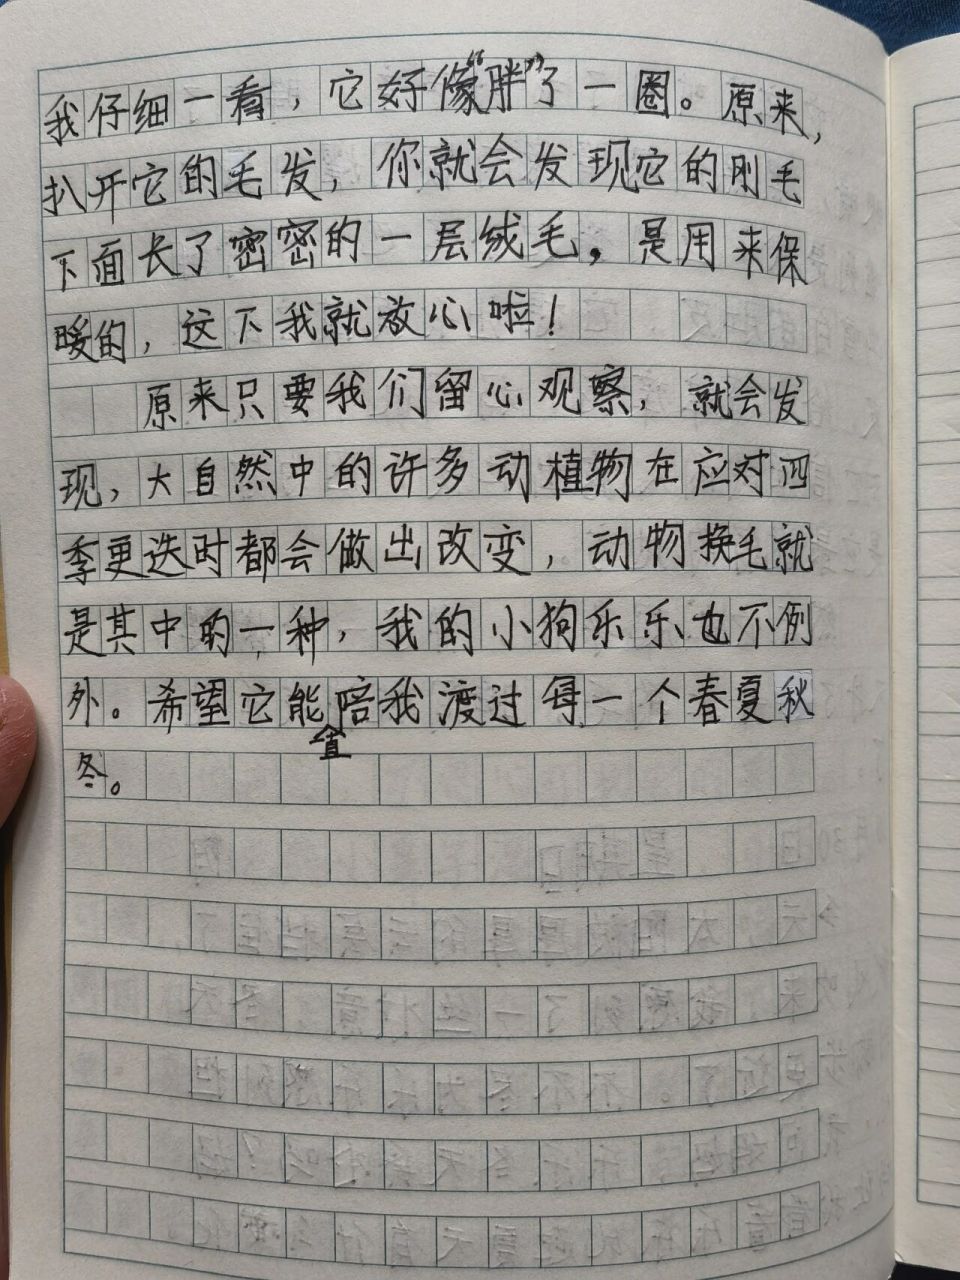 我仔细一看，它好像“胖”了一圈。原来，
扒开它的毛发，你就会发现它的刚毛
下面长了密密的一层绒毛，是用来保
暖的，这下我就放心啦！
原来只要我们留心观察，就会发
现，大自然中的许多动植物在应对四
季更迭时都会做出改变，动物换毛就
是其中的一种，我的小狗乐乐也不例
外。希望它能陪我渡过每一个春夏秋
直
冬。